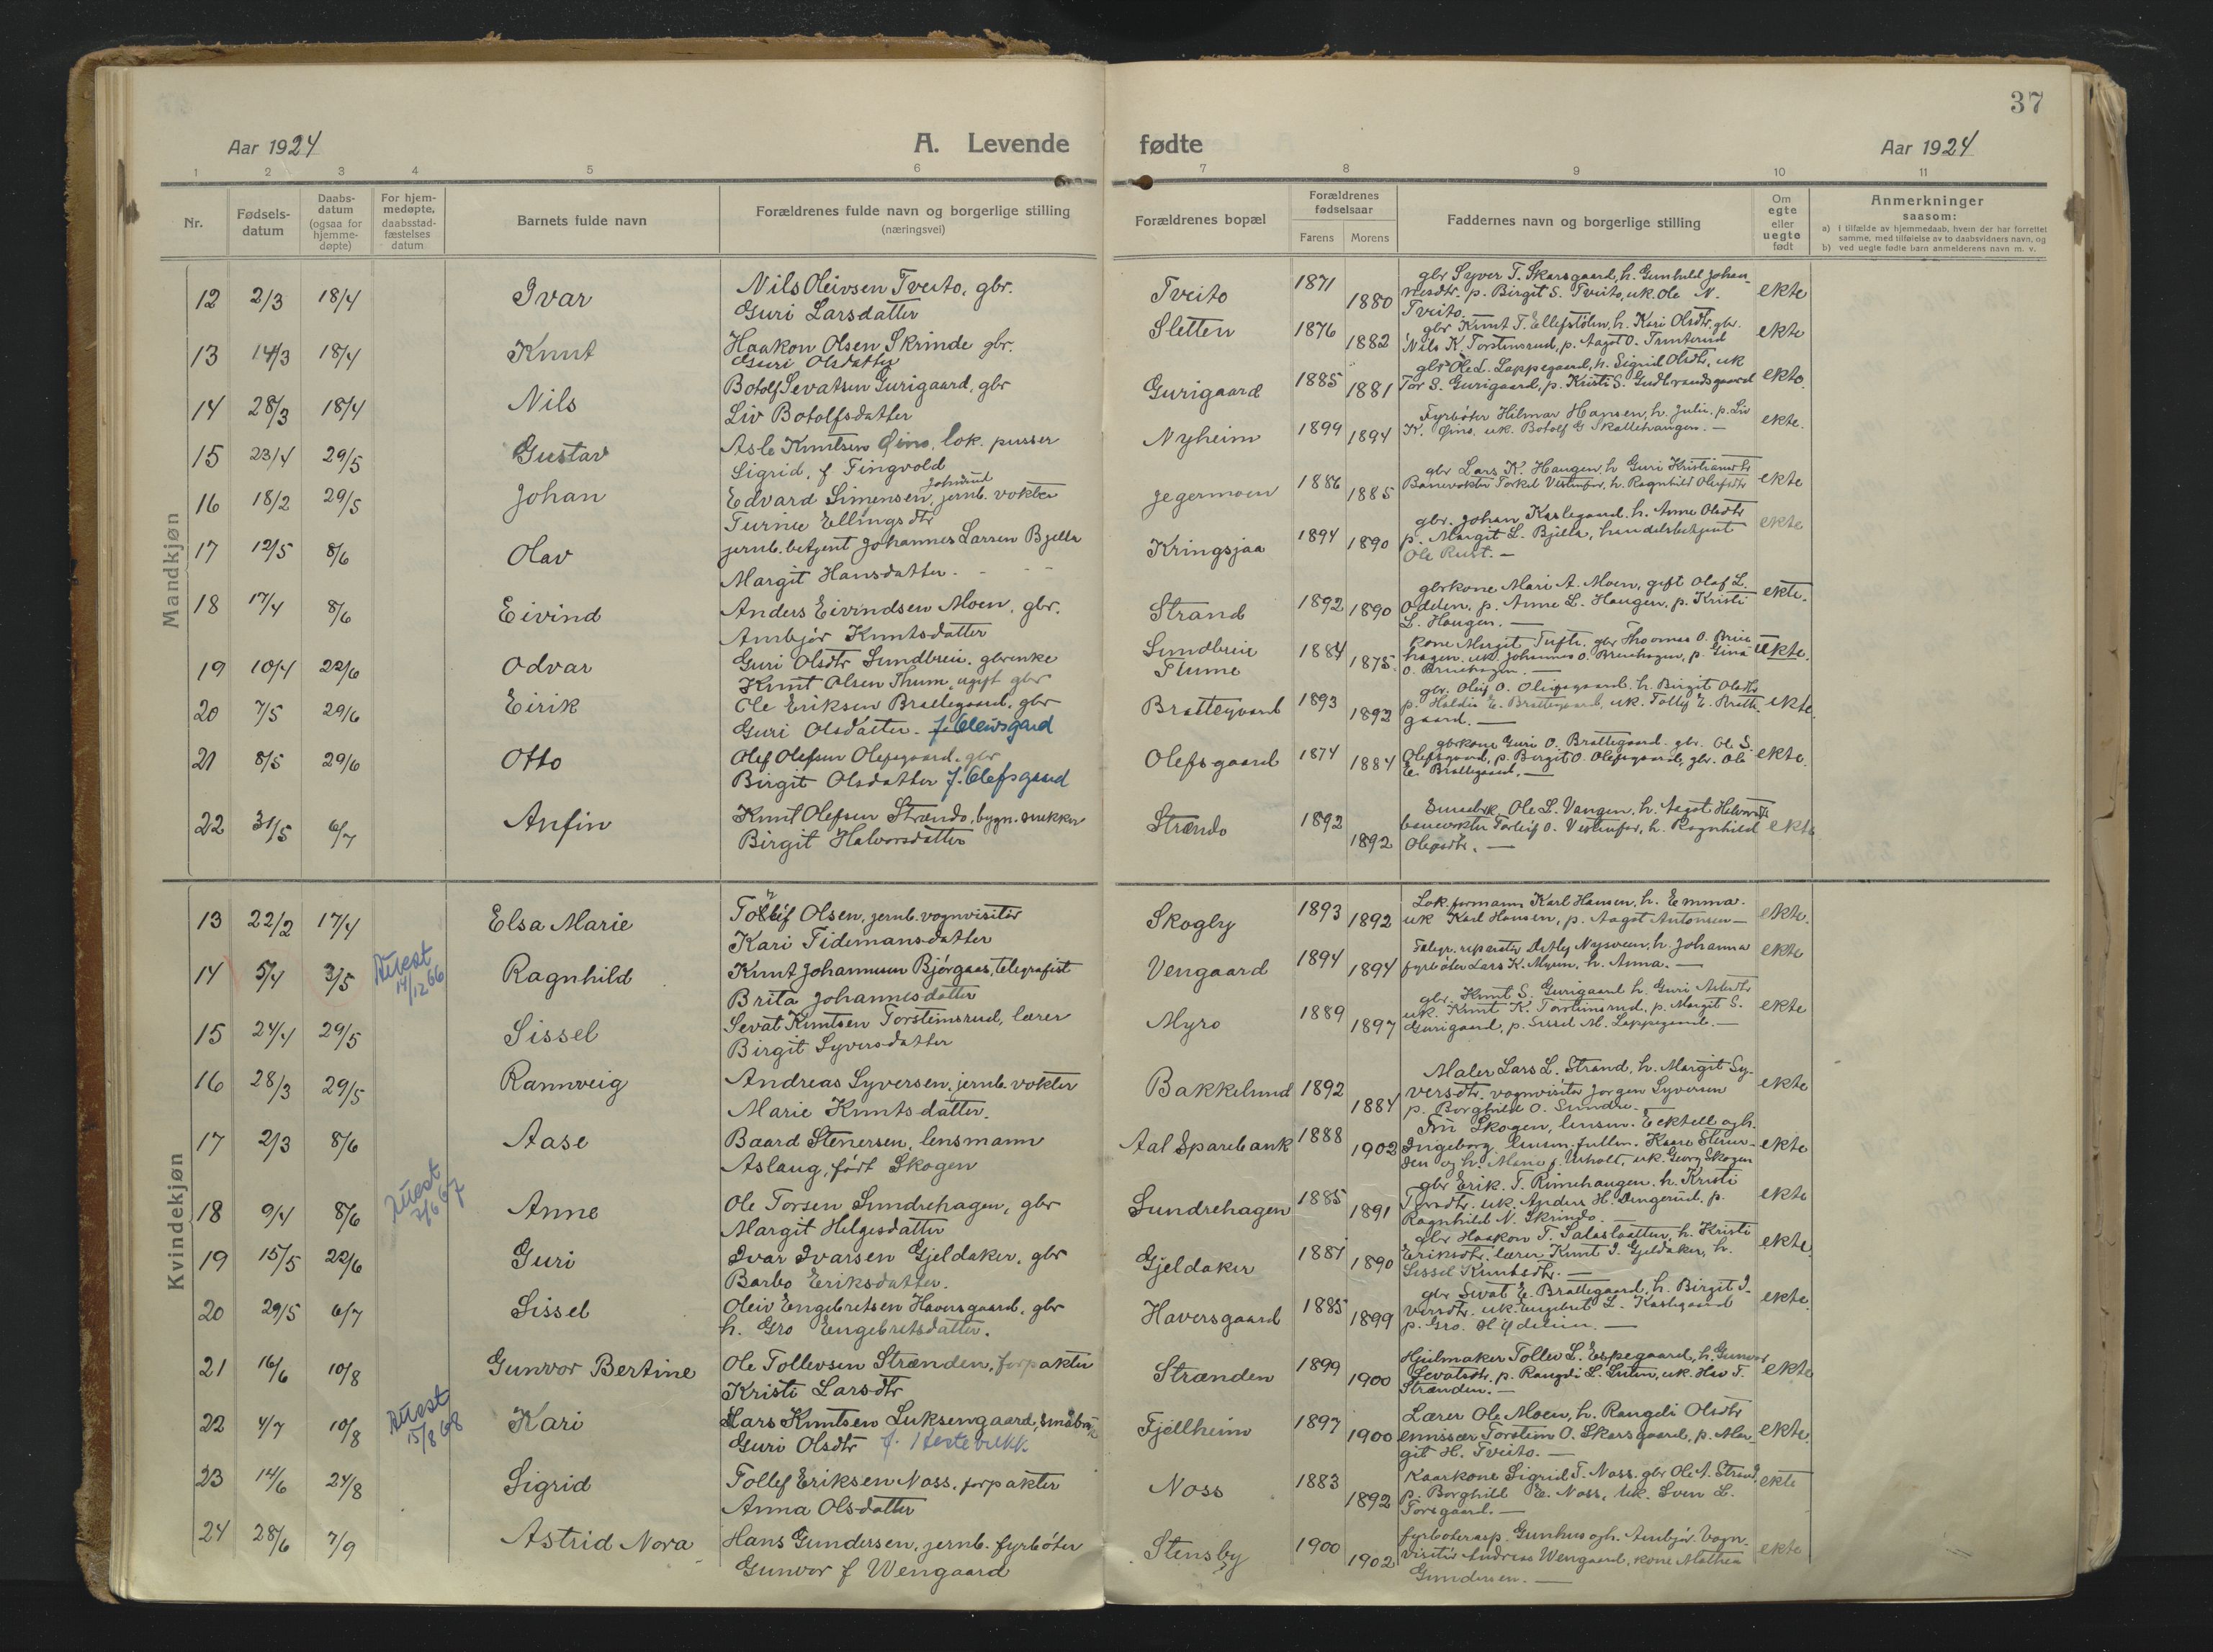 37
Aar 1924
A. Levende fødte
Aar 1924
1 2 3 4 5 6 7 8 9 10 11
Nr.
Fødsels-
datum
Daabs-
datum
(ogsaa for
hjemme-
døpte)
For hjem-
medøpte,
daabsstad-
fæstelses
datum
Barnets fulde navn
Forældrenes fulde navn og borgerlige stilling
(næringsvei)
Forældrenes bopæl
Forældrenes
fødselsaar
Farens Morens
Faddernes navn og borgerlige stilling
Om
egte
eller
uegte
født
Anmerkninger
saasom:
a) I tilfælde av hjemmedaab, hvem der har forrettet
samme, med tilføielse av to daabsvidners navn, og
b) ved uegte fødte barn anmelderens navn m. v.
Mandkjøn
12 2/3 18/4 Ivar Nils Oleivsen Tveito, gbr. Tveito 1871 gbr Syver T. Skarsgaard, h. Gunhild Johan-
Guri Larsdatter 1880 nesdtr. p. Birgit S. Tveito, uk. Ole N. ekte
Tveito.
13 14/3 18/4 Knut Haakon Olsen Skrinde gbr. Sletten 1876 gbr Knut T. Ellefstølen, h. Kari Olsdtr, gbr. ekte
Guri Olsdatter 1882 Nils K. Torsteinsrud, p. Aagot O.
14 28/3 18/4 Nils Botolf Sevatsen Gurigaard, gbr Gurigaard 1885 gbr Ole L. Lappegaard, h. Sigrid Olsdtr, uk
Liv Botolfsdatter 1881 Tor S. Gurigaard, p. Kristi S. Gudbrandsgaard ekte.
15 23/4 29/5 Gustav Asle Knutsen Øino, lok. pusser Nyheim 1899 Fyrbøter Hilmar Hansen, h. Julie, p. Liv ekte.
Sigrid, f. Tingvold 1894 K. Øino, uk. Botolf G Skallehaugen. —
16 18/2 29/5 Johan Edvard Simensen, Johnsrud jernb. vokter Jegermoen 1886 gbr Lars K. Haugen, h Guri Kristiansdtr ekte
Turine Ellingsdtr 1885 Banevokter Torkel Vestenfor, h. Ragnhild Olefsdtr
17 12/5 8/6 Olav jernb. betjent Johannes Larsen Bjella Kringsjaa 1894 gbr. Johan Kaslegaard, h. Anne Olsdtr ekte
Margit Hansdatter. 1890 p. Margit L. Bjella, handelsbetjent
Ole Rust. —
18 17/4 8/6 Eivind Anders Eivindsen Moen, gbr. Strand 1892 gbrkone Mari A. Moen, gift Olaf L. ekte.
Ambjør Knutsdatter 1890 Odden, p. Anne L. Haugen, p. Kristi
L. Haugen. —
19 10/4 22/6 Odvar Guri Olsdtr Sundbrei. gbrenke Sundbrei 1884 kone Margit Tufte. gbr Thoomas O. Brei- uekte.
Knut Olsen Thum, ugift gbr 1875 hagen. uk. Johannes O. Breihagen, p. Gina
O. Breihagen. —
20 7/5 29/6 Eirik Ole Eriksen Brattegaard, gbr Brattegaard 1893 gbr. Oleif O. Oleifsgaard, h. Birgit Olsdtr
Guri Olsdatter. f. Oleivsgard 1892 p. Haldis E. Brattegaard, uk. Tollef E. Bratte- ekte.
gaard. —
21 8/5 29/6 Otto Olef Olefsen Olefsgaard. gbr Olefsgaard 1874 gbrkone Guri O. Brattegaard. gbr. Ole S.
Birgit Olsdatter f. Olefsgaard 1884 Olefsgaard, p. Birgit O. Olefsgaard, gbr. Ole ekte.
E. Brattegaard. —
22 31/5 6/7 Anfin Knut Olefsen Strando, bygn. snekker Strando 1892 Ole L. Vangen, h. Aagot Halvorsdtr
Birgit Halvorsdatter 1892 banevokter Torleif O. Vestenfor, h. Ragnhild ekte
Olefsdtr. —
Kvindekjøn
13 22/2 17/4 Elsa Marie Tolleif Olsen, jernb. vognvisitør Skogly 1893 Lok. formann Karl Hansen, h. Emma. ekte.
Kari Tidemansdatter 1892 uk Karl Hansen, p. Aagot Antonsen —
14 5/4 3/5 Attest 14/12 66 Ragnhild Knut Johannesen Bjørgaas, telegrafist Vengaard 1894 Telegr. reparatør Detlef Nysveen, h. Johanna ekte
Brita Johannesdatter 1894 fyrbøter Lars K. Myren, h. Anna. —
15 24/4 29/5 Sissel Sevat Knutsen Torsteinsrud, lærer Myro 1889 gbr. Knut S. Gurigaard h. Guri Asledtr ekte
Birgit Syversdatter 1897 uk. Knut K. Torsteinsrud, p. Margit S.
Gurigaard, p. Sissel M. Lappegaard. —
16 28/3 29/5 Rannveig Andreas Syversen, jernb. vokter Bakkelund 1892 Maler Lars L. Strand, h. Margit Sy- ekte
Marie Knutsdatter. 1884 versdtr. vognvisitør Jørgen Syversen
p. Borghild O. Sundre. —
17 2/3 8/6 Aase Baard Stenersen, lensmann Aal Sparebank 1888 Fru Skogen, lensm. Eckhell og h.
Aslaug, født Skogen 1902 Ingeborg. lensm. fullm. Kaare Stener- ekte
sen og h. Marie f. Urholt, uk. Georg Skogen
18 9/4 8/6 Attest 7/6 67 Anne Ole Torsen Sundrehagen, gbr Sundrehagen 1885 gbr Erik T. Rimehaugen. h. Kristi ekte
Margit Helgesdatter 1891 Torsdtr. uk. Anders H. Dengerud. p.
Ragnhild N. Skrindo. —
19 15/5 22/6 Guri Ivar Ivarsen Gjeldaker, gbr Gjeldaker 1887 gbr Haakon T. Sataslaatten, h. Kristi ekte.
Barbo Eriksdatter. 1890 Eriksdtr. lærer Knut I. Gjeldaker, h.
Sissel Knutsdtr. —
20 29/5 6/7 Sissel Oleiv Engebretsen Haversgaard, gbr Haversgaard 1885 gbr Sevat E. Brattegaard, h. Birgit I- ekte.
h. Gro Engebretsdatter. 1899 varsdtr. uk. Engebret L. Kaslegaard
p. Gro. —
21 16/6 10/8 Gunvor Bertine Ole Tollevsen Strænden, forpakter Strænden 1899 Hjulmaker Tollev L. Espegaard, h. Gunvor ekte
Kristi Larsdtr 1900 Sevatsdtr, p. Rangdi L. uk. T.
Strænden. —
22 4/7 10/8 Attest 15/8 68 Kari Lars Knutsen Luksengaard, småbr. Fjellheim 1897 Lærer Ole Moen, h. Rangdi Olsdtr ekte.
Guri Olsdtr f. Hestebrekk 1900 emissær Torstein O. Skarsgaard, p. Mar-
git H. Tveito. —
23 14/6 24/8 Sigrid Tollef Eriksen Noss, forpakter Noss 1883 Kaarkone Sigrid T. Noss. gbr Ole A. Strand, ekte
Anna Olsdatter 1892 p. Borghild E. Noss, uk. Sven L.
Torsgaard. —
24 28/6 7/9 Astrid Nora Hans Gundersen, jernb. fyrbøter Stensby 1900 fyrbøterasp. Gunhus og h. Ambjør. Vogn- ekte
Gunvor f Wengaard 1902 visitør Andreas Wengaard, kone Mathea
Gundersen. —